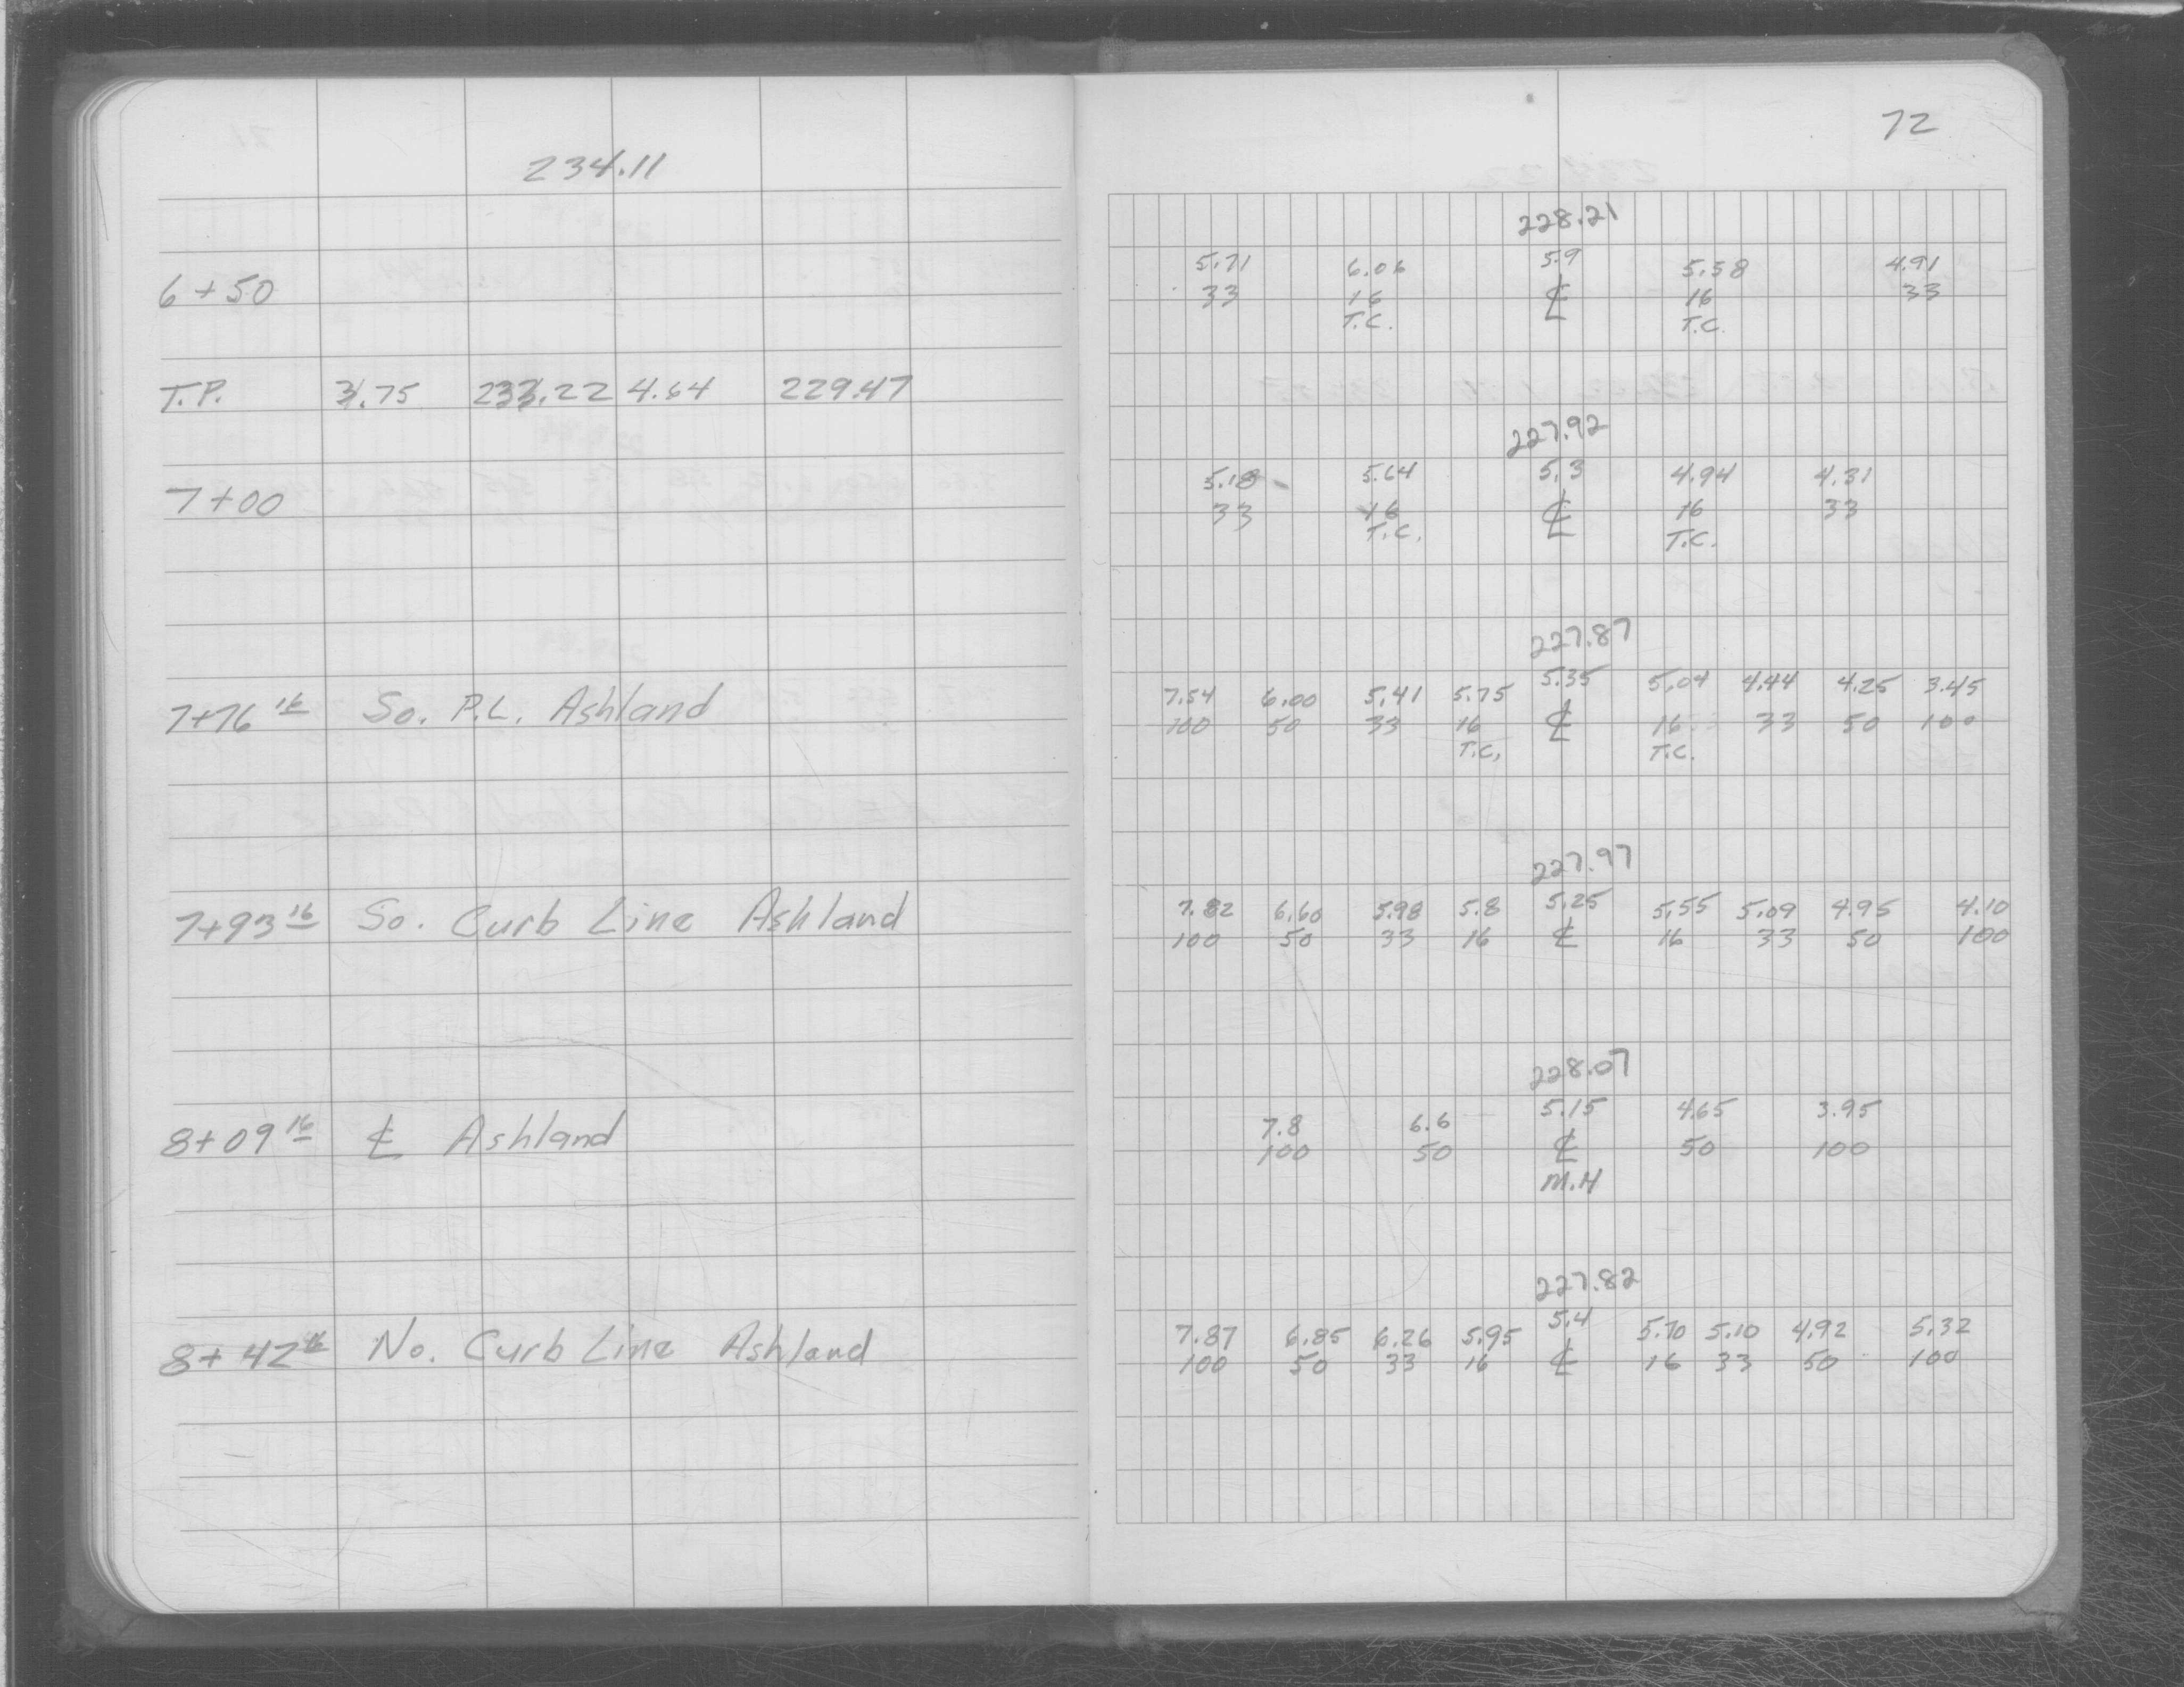 72
234.11
228.21
6+50 5.71 6.06 5.9 5.58 4.91
33 16 ℄ 16 33
T.C. T.C.
T.P. 3.75 233.22 4.64 229.47
227.92
7+00 5.18 5.64 5.3 4.94 4.31
33 16 ℄ 16 33
T.C. T.C.
227.87
7+76 16 So. P.L. Ashland 7.54 6.00 5.41 5.75 5.35 5.04 4.44 4.25 3.45
100 50 33 16 ℄ 16 33 50 100
T.C. T.C.
227.97
7+93 16 So. Curb Line Ashland 7.82 6.60 5.98 5.8 5.25 5.55 5.09 4.95 4.10
100 50 33 16 ℄ 16 33 50 100
228.07
8+09 16 ℄ Ashland 7.8 6.6 5.15 4.65 3.95
100 50 ℄ 50 100
M.H
227.82
8+42 16 No. Curb Line Ashland 7.87 6.85 6.26 5.95 5.4 5.70 5.10 4.92 5.32
100 50 33 16 ℄ 16 33 50 100